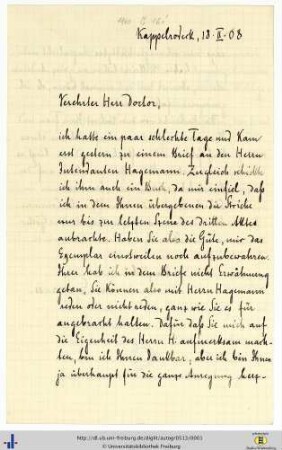 Kappelrodeck, 13. II. 08
Verehrter Herr Doctor,
ich hatte ein paar schlechte Tage und kam
erst gestern zu einem Brief an den Herrn
Intendanten Hagemann. Zugleich schickte
ich ihm auch ein Buch, da mir einfiel, daß
ich in dem Ihnen übergebenen die Striche
nur bis zur letzten Szene des dritten Aktes
anbrachte. Haben Sie also die Güte, mir das
Exemplar einstweilen noch aufzubewahren.
Ihrer hab ich in dem Brief nicht Erwähnung
getan, Sie können also mit Herrn Hagemann
reden oder nicht reden, ganz wie Sie es für
angebracht halten. Dafür daß Sie mich auf
die Eigenheit des Herrn H. aufmerksam mach-
ten, bin ich Ihnen dankbar, aber ich bin Ihnen
ja überhaupt für die ganze Anregung herz-
http://dl.ub.uni-freiburg.de/diglit/autogr0512/0001
© Universitätsbibliothek Freiburg